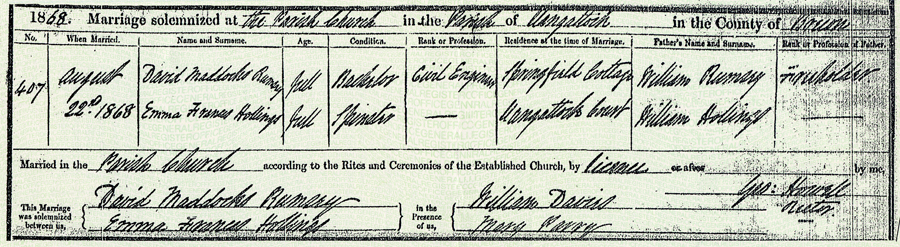 1868. Marriage solemnized at the Parish Church in the Parish of Llangattock in the County of Brecon
No. When Married. Name and Surname. Age. Condition. Rank or Profession. Residence at the time of Marriage. Father's Name and Surname. Rank or Profession of Father.
407 August David Maddocks Rumsey Full Bachelor Civil Engineer Springfield Cottage William Rumsey Freeholder
22nd 1868 Emma Frances Hollings Full Spinster — Llangattock Court William Hollings —
Married in the Parish Church according to the Rites and Ceremonies of the Established Church, by licence or after by me,
Geo: Howell
Rector
This Marriage was solemnized between us, David Maddocks Rumsey
Emma Frances Hollings
in the Presence of us, William Davies
Mary Parry